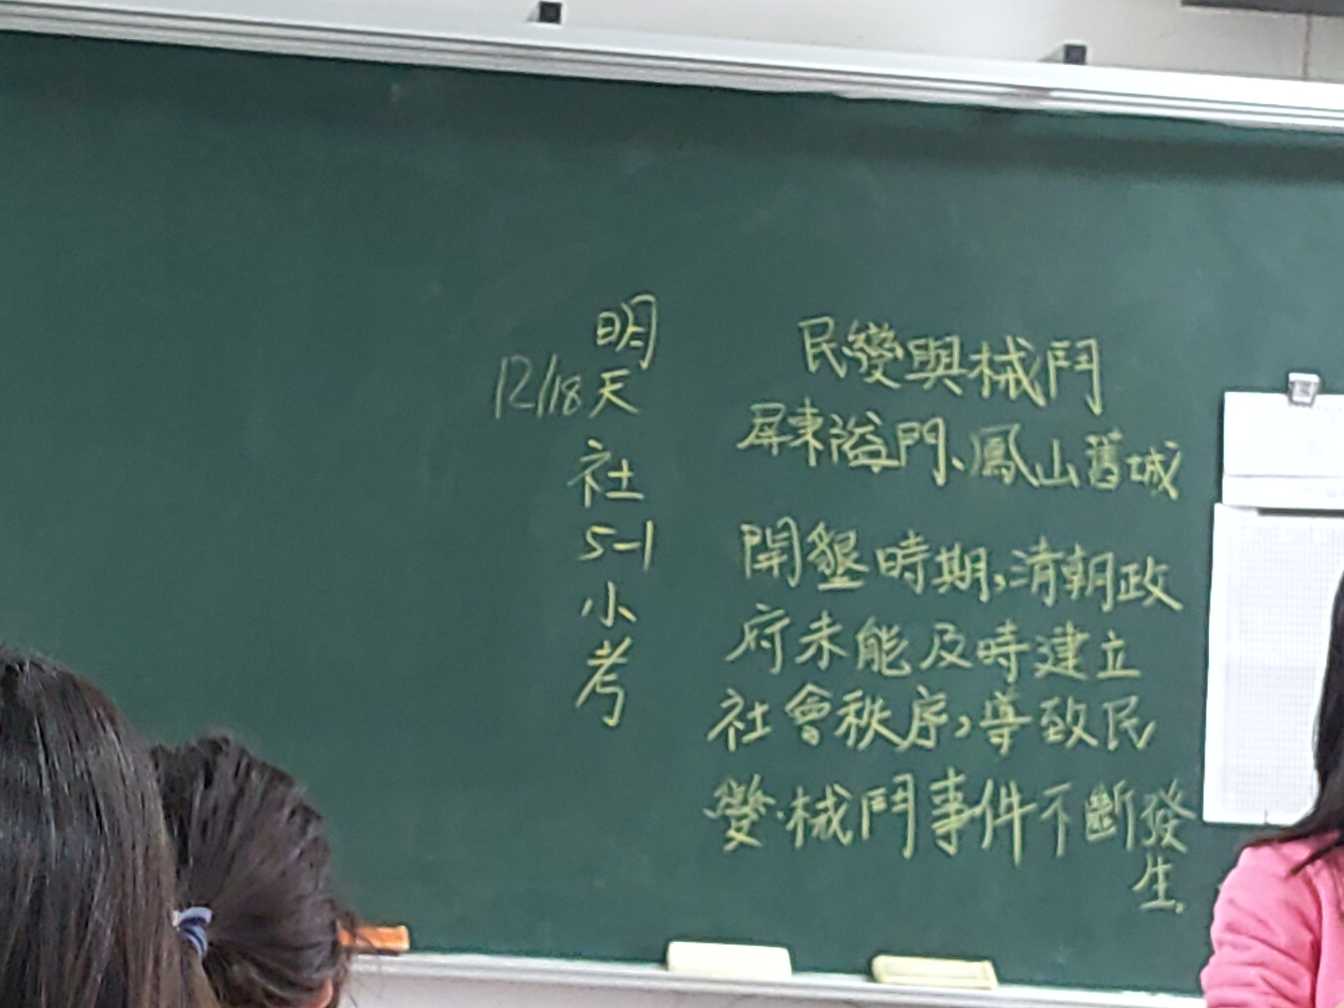 民變與械鬥
屏東隘門、鳳山舊城
開墾時期,清朝政
府未能及時建立
社會秩序,導致民
變、械鬥事件不斷發
生。
明天社5-1小考
12/18